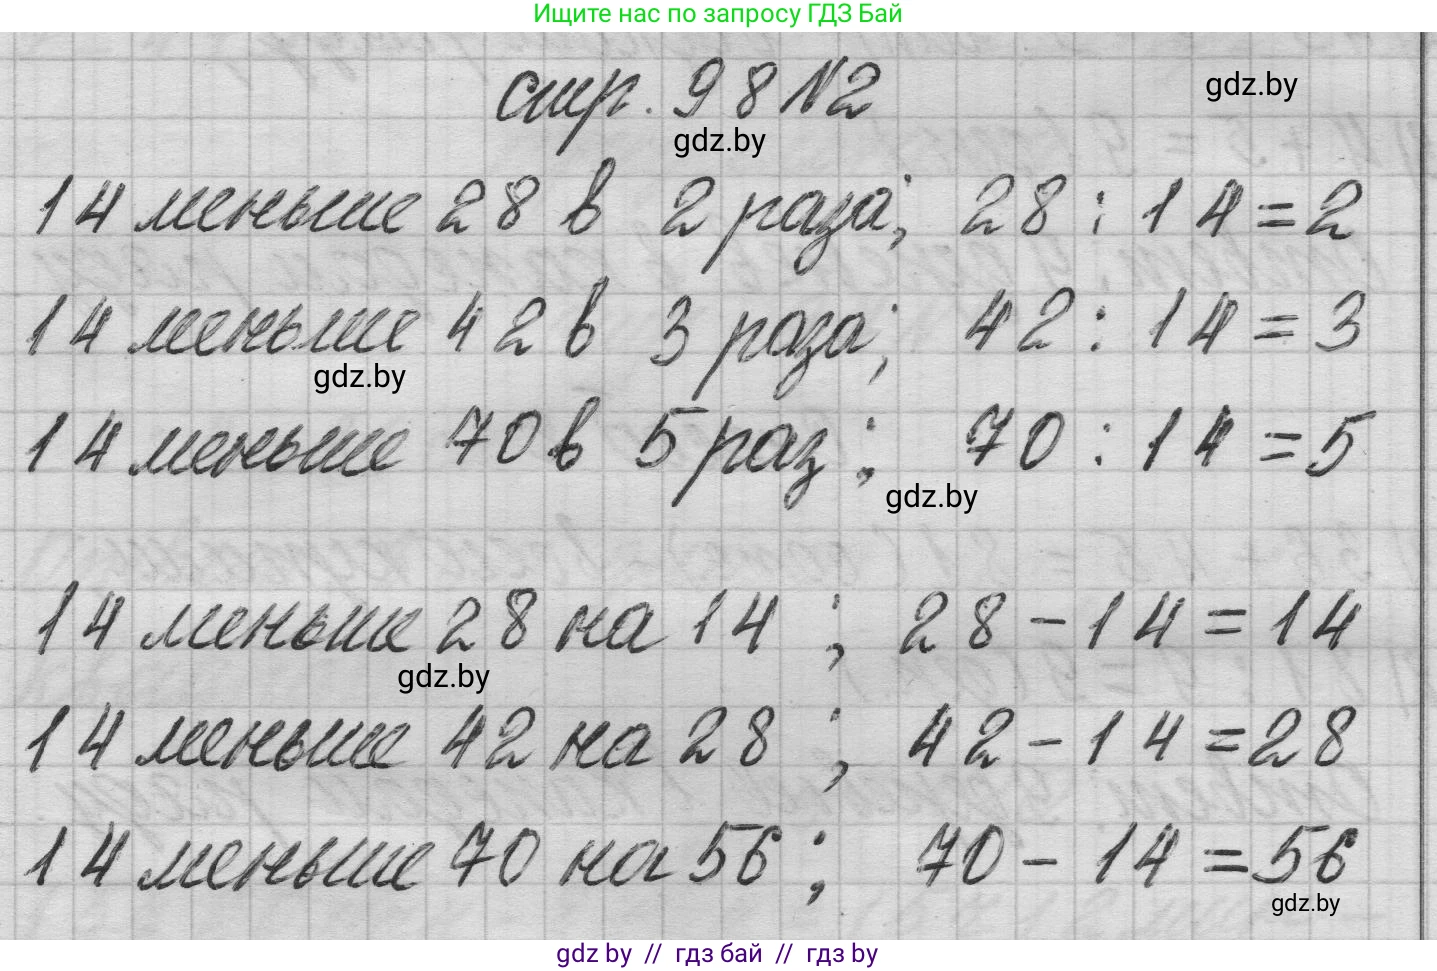 Ищите нас по запросу ГДЗ Бай
стр. 98 №2
gdz.by
gdz.by
14 меньше 28 в 2 раза; 28 : 14 = 2
14 меньше 42 в 3 раза; 42 : 14 = 3
gdz.by
14 меньше 70 в 5 раз; 70 : 14 = 5
gdz.by
14 меньше 28 на 14 ; 28 - 14 = 14
gdz.by
14 меньше 42 на 28 ; 42 - 14 = 28
14 меньше 70 на 56 ; 70 - 14 = 56
gdz.by
gdz by // гдз бай // гдз by